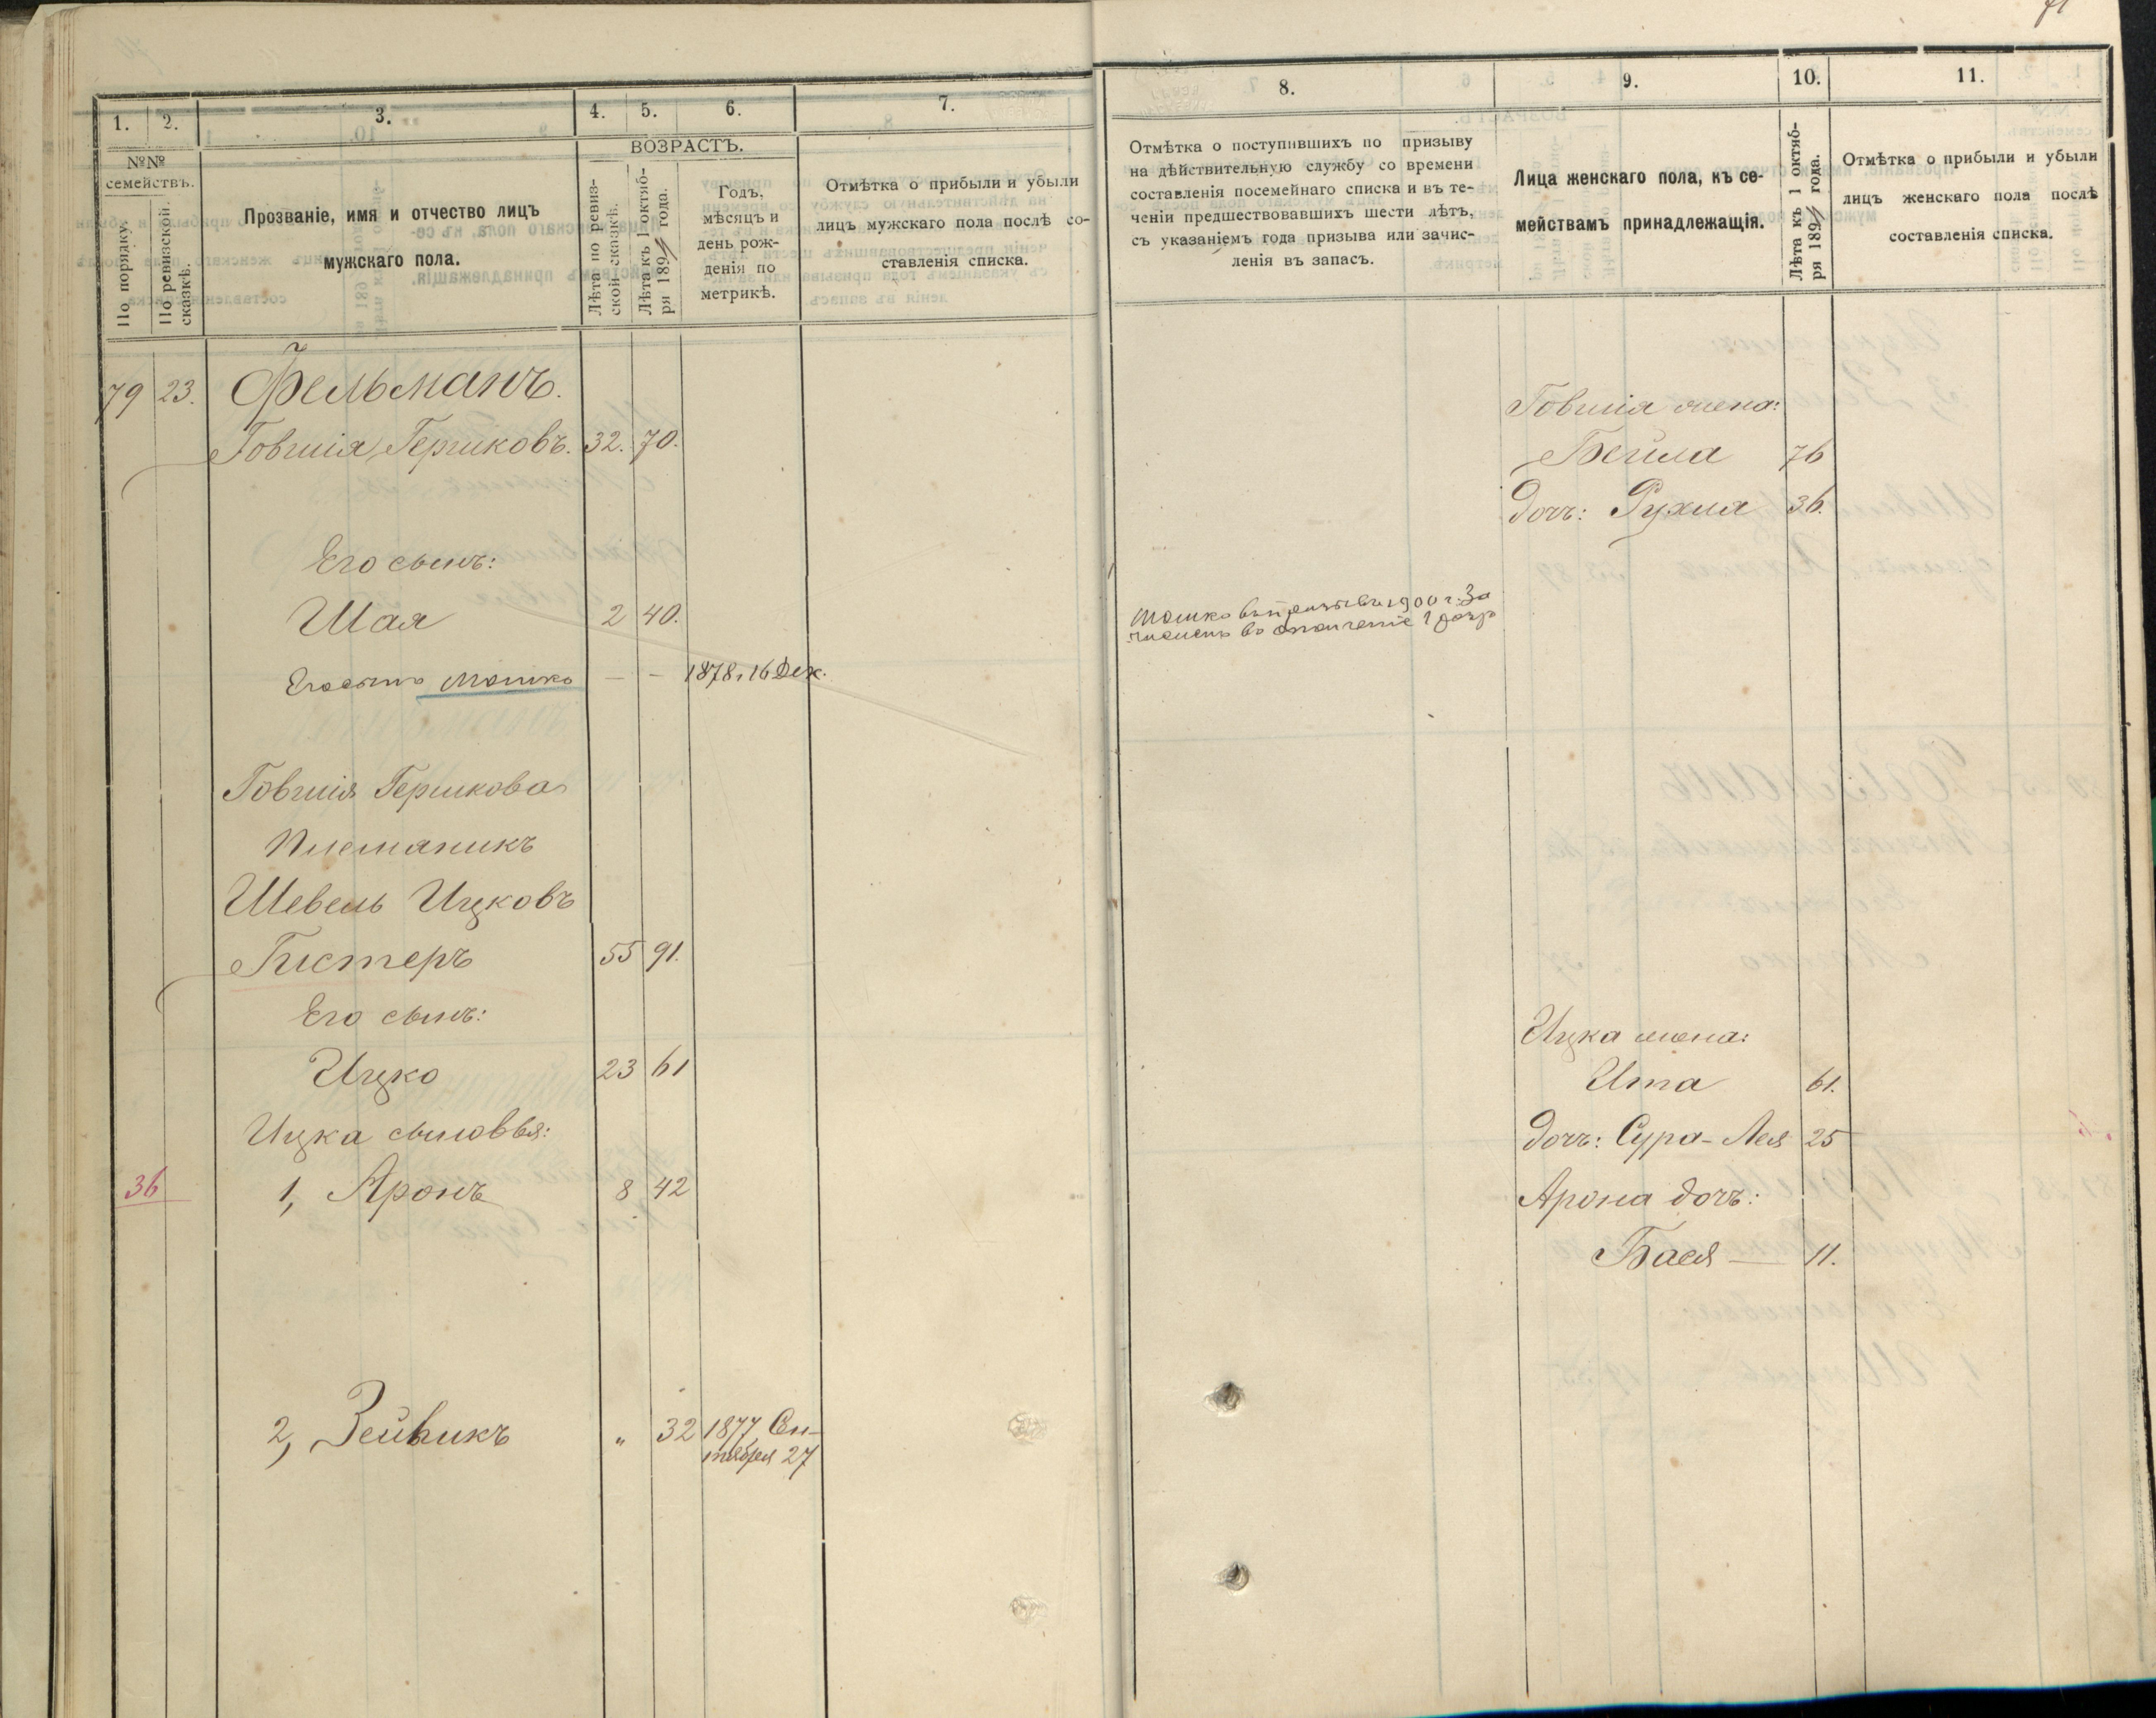 71
1.
2.
3.
4.
5.
6.
7.
№№
семействъ.
По порядку.
По ревизской
сказкѣ.
Прозваніе, имя и отчество лицъ
мужскаго пола.
ВОЗРАСТЪ.
Лѣта по ревиз-
ской сказкѣ.
Лѣта къ 1 октяб-
ря 189 года.
Годъ,
мѣсяцъ и
день рож-
денія по
метрикѣ.
Отмѣтка о прибыли и убыли
лицъ мужскаго пола послѣ со-
ставленія списка.
79 23. Фельманъ.
Говшія Гершковъ. 32. 70.
Его сынъ:
Шая 2 40.
Его сынъ Мошко — — 1878 г. 16 Дек.
Говшія Гершкова
племяникъ
Шевель Ицковъ
Гистеръ 55 91.
Его сынъ:
Ицко 23 61
Ицка сыновья:
36 1, Аронъ 8 42
2, Зейвикъ „ 32 1877 Сен-
тября 27
8.
9.
10.
11.
Отмѣтка о поступившихъ по призыву
на дѣйствительную службу со времени
составленія посемейнаго списка и въ те-
ченіи предшествовавшихъ шести лѣтъ,
съ указаніемъ года призыва или зачис-
ленія въ запасъ.
Лица женскаго пола, къ се-
мействамъ принадлежащія.
Лѣта къ 1 октяб-
ря 189 года.
Отмѣтка о прибыли и убыли
лицъ женскаго пола послѣ
составленія списка.
Говшія жена:
Бейла 76
дочь: Рухля 36.
Мошко въ призывъ 1900 г. За
численъ во ополченіе 1 разр
Ицка жена:
Ита 61.
дочь: Сура-Лея 25
Арона дочь:
Бася — 11.